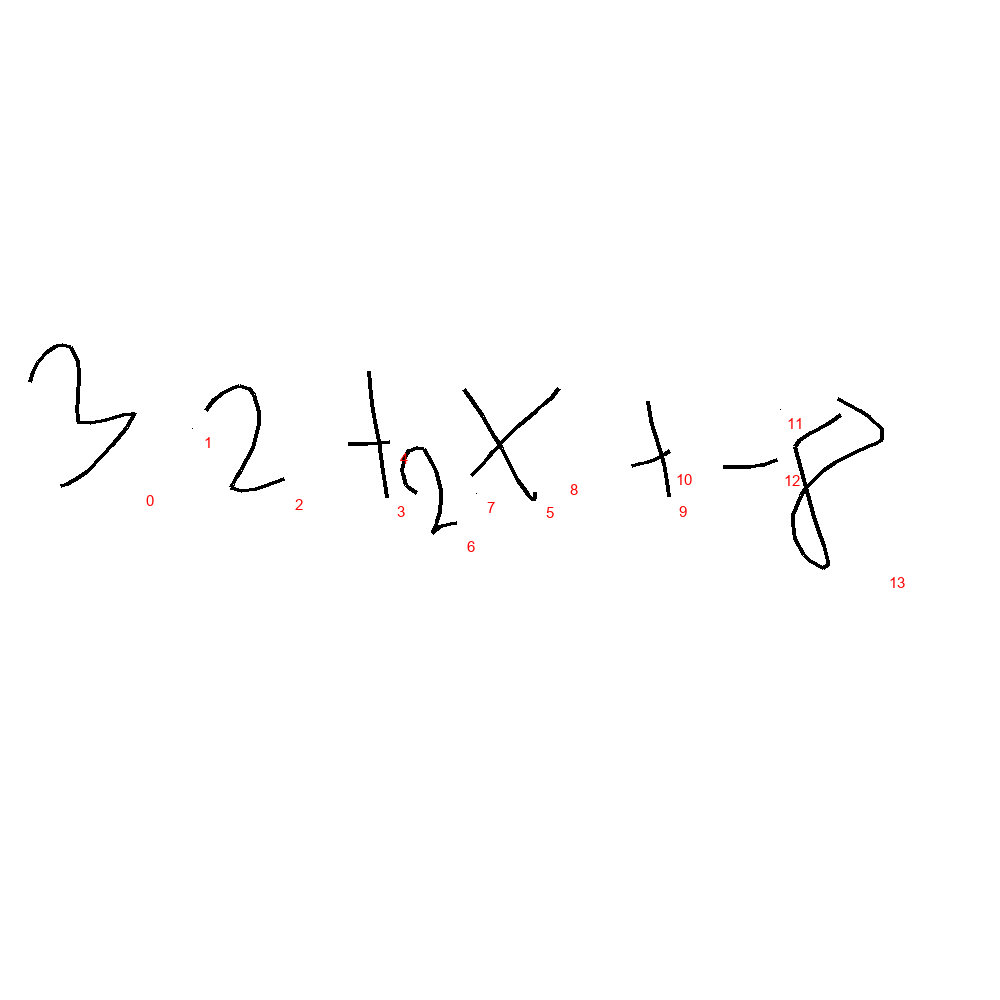 3 2 + 2 x + - 8
0 1 2 3 4 6 7 5 8 9 10 11 12 13